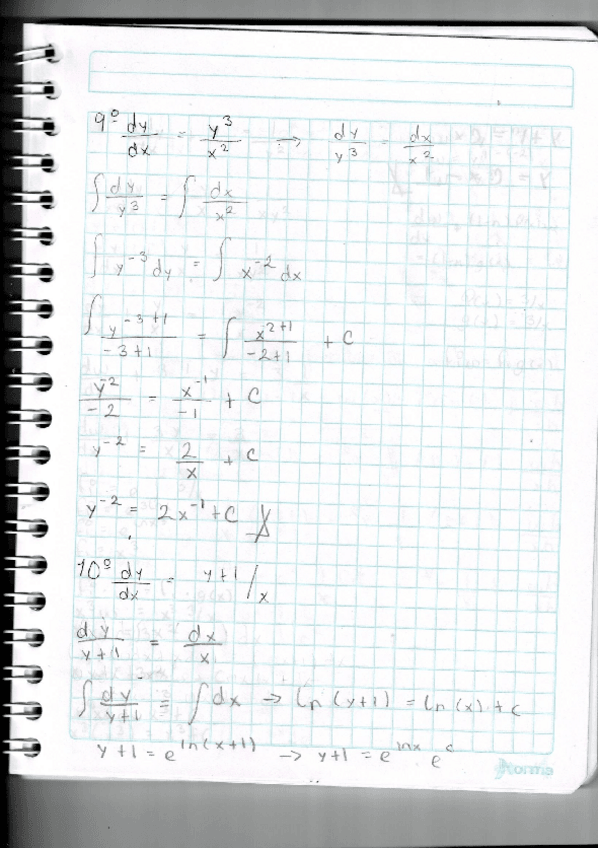 9º dy/dx = y³/x² → dy/y³ = dx/x²
∫ dy/y³ = ∫ dx/x²
∫ y⁻³ dy = ∫ x⁻² dx
∫ y⁻³⁺¹/-3+1 = ∫ x⁻²⁺¹/-2+1 + C
y⁻²/-2 = x⁻¹/-1 + C
y⁻² = 2/x + C
y⁻² = 2x⁻¹ + C
10º dy/dx = y+1/x
dy/y+1 = dx/x
∫ dy/y+1 = ∫ dx → Ln (y+1) = Ln (x) + c
y+1 = e^ln(x+1) → y+1 = e^lnx e^c
norma